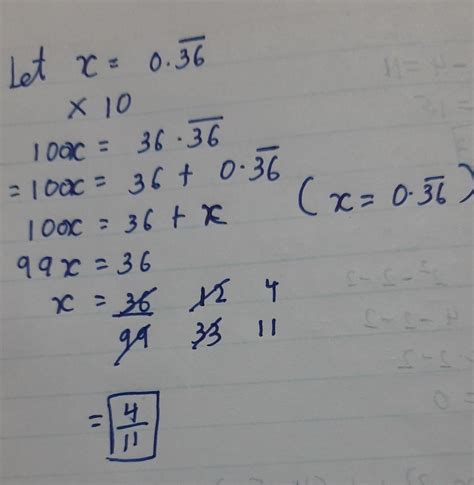 Let x = 0.3̅6̅
× 10
100x = 36.3̅6̅
= 100x = 36 + 0.3̅6̅
100x = 36 + x (x = 0.3̅6̅)
99x = 36
x = 36/99 12/33 4/11
= 4/11